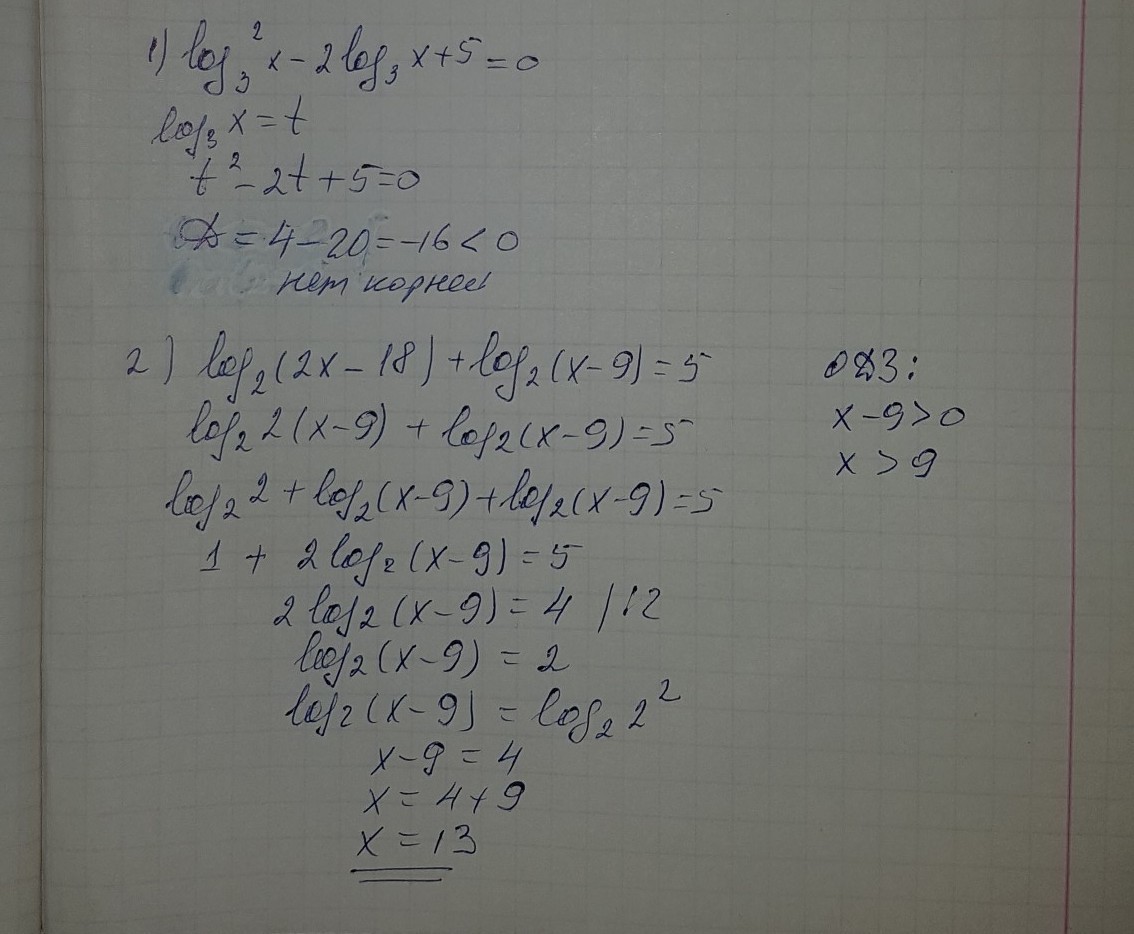 1) log₃²x-2log₃x+5=0
log₃x=t
t²-2t+5=0
D=4-20=-16<0
нет корней
2) log₂(2x-18)+log₂(x-9)=5
log₂2(x-9)+log₂(x-9)=5
log₂2+log₂(x-9)+log₂(x-9)=5
1+2log₂(x-9)=5
2log₂(x-9)=4 |:2
log₂(x-9)=2
log₂(x-9)=log₂2²
x-9=4
x=4+9
x=13
ОДЗ:
x-9>0
x>9